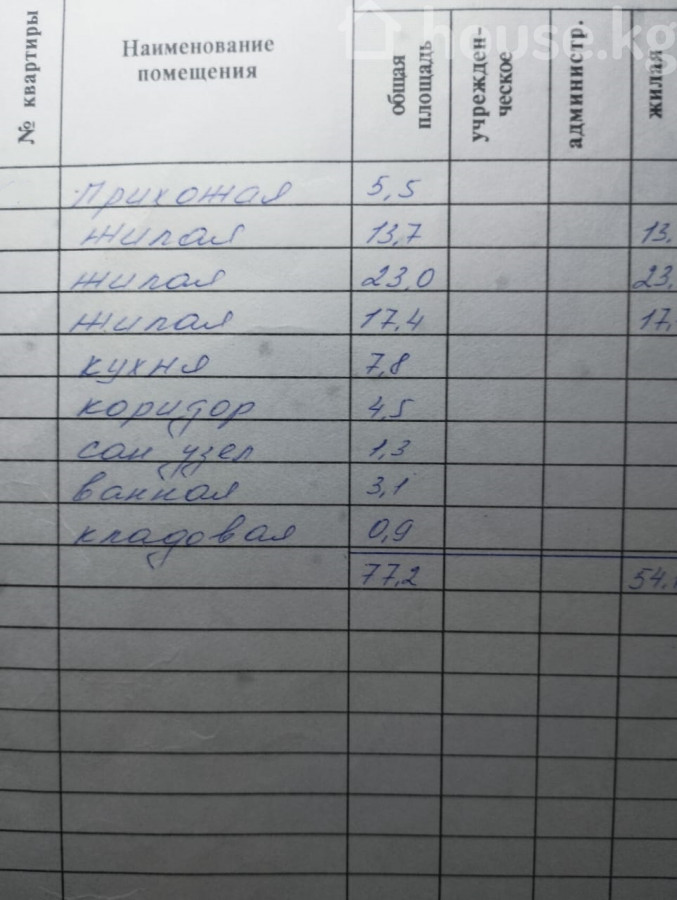 house.kg
№ квартиры
Наименование
помещения
общая
площадь
учрежден-
ческое
администр.
жилая
Прихожая 5,5
жилая 13,7 13,
жилая 23,0 23,
жилая 17,4 17,
кухня 7,8
коридор 4,5
сан узел 1,3
ванная 3,1
кладовая 0,9
77,2 54,